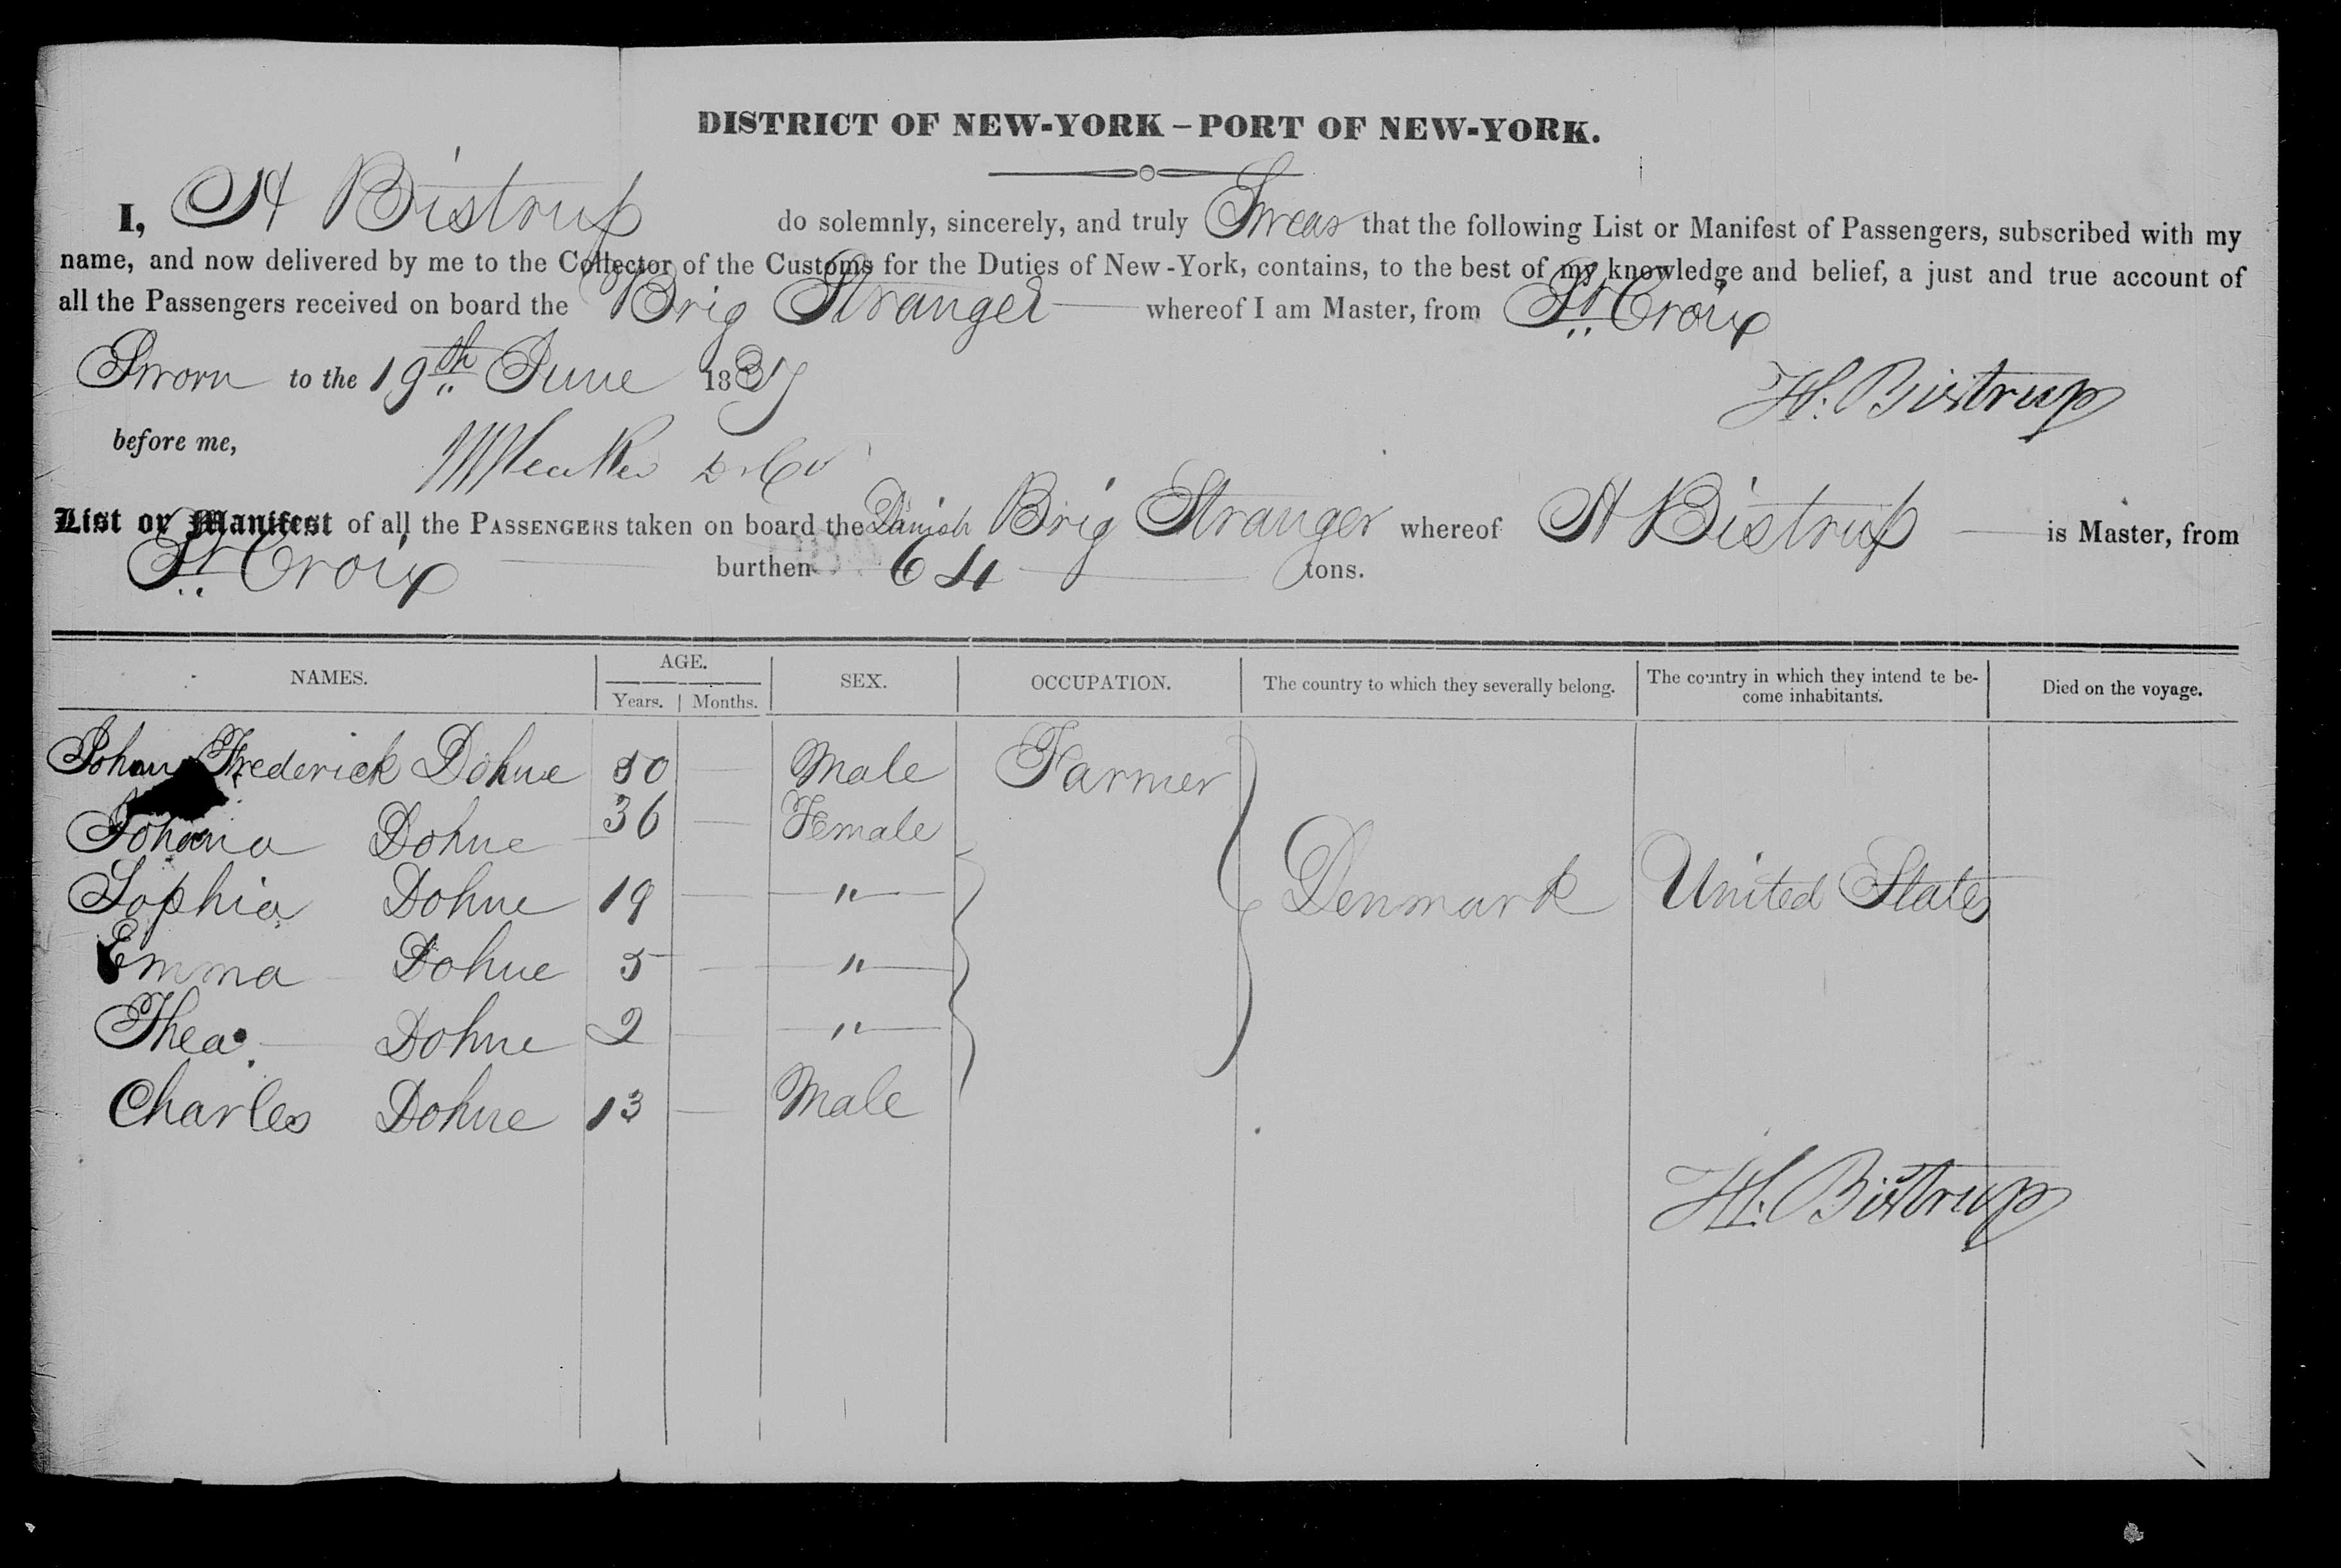 DISTRICT OF NEW-YORK – PORT OF NEW-YORK.
I, H Bistrup do solemnly, sincerely, and truly Swear that the following List or Manifest of Passengers, subscribed with my
name, and now delivered by me to the Collector of the Customs for the Duties of New-York, contains, to the best of my knowledge and belief, a just and true account of
all the Passengers received on board the Brig Stranger whereof I am Master, from St Croix
Sworn to the 19th June 1837
H. Bistrup
before me,
List or Manifest of all the PASSENGERS taken on board the Danish Brig Stranger whereof H Bistrup is Master, from
St Croix burthen 64 tons.
NAMES. AGE. SEX. OCCUPATION. The country to which they severally belong. The country in which they intend te be- Died on the voyage.
Years. Months. come inhabitants.
Johan Frederick Dohne 50 — Male Farmer
Johana Dohne 36 — Female
Sophia Dohne 19 — " Denmark United States
Emma Dohne 5 — "
Thea Dohne 2 — "
Charles Dohne 13 — Male
H. Bistrup